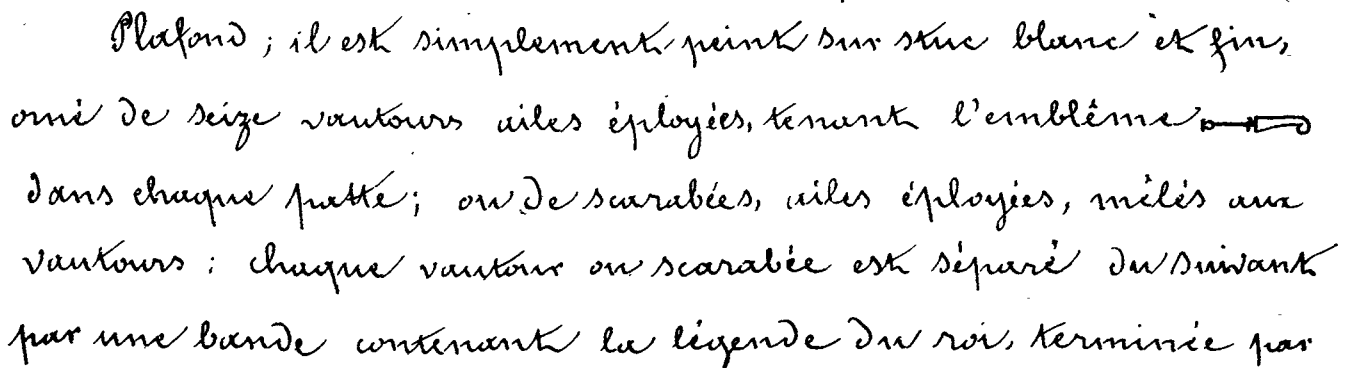 Plafond ; il est simplement peint sur stuc blanc et fin,
orné de seize vautours ailes éployées, tenant l'emblême
dans chaque patte ; ou de scarabées, ailes éployées, mêlés aux
vautours : chaque vautour ou scarabée est séparé du suivant
par une bande contenant la légende du roi, terminée par